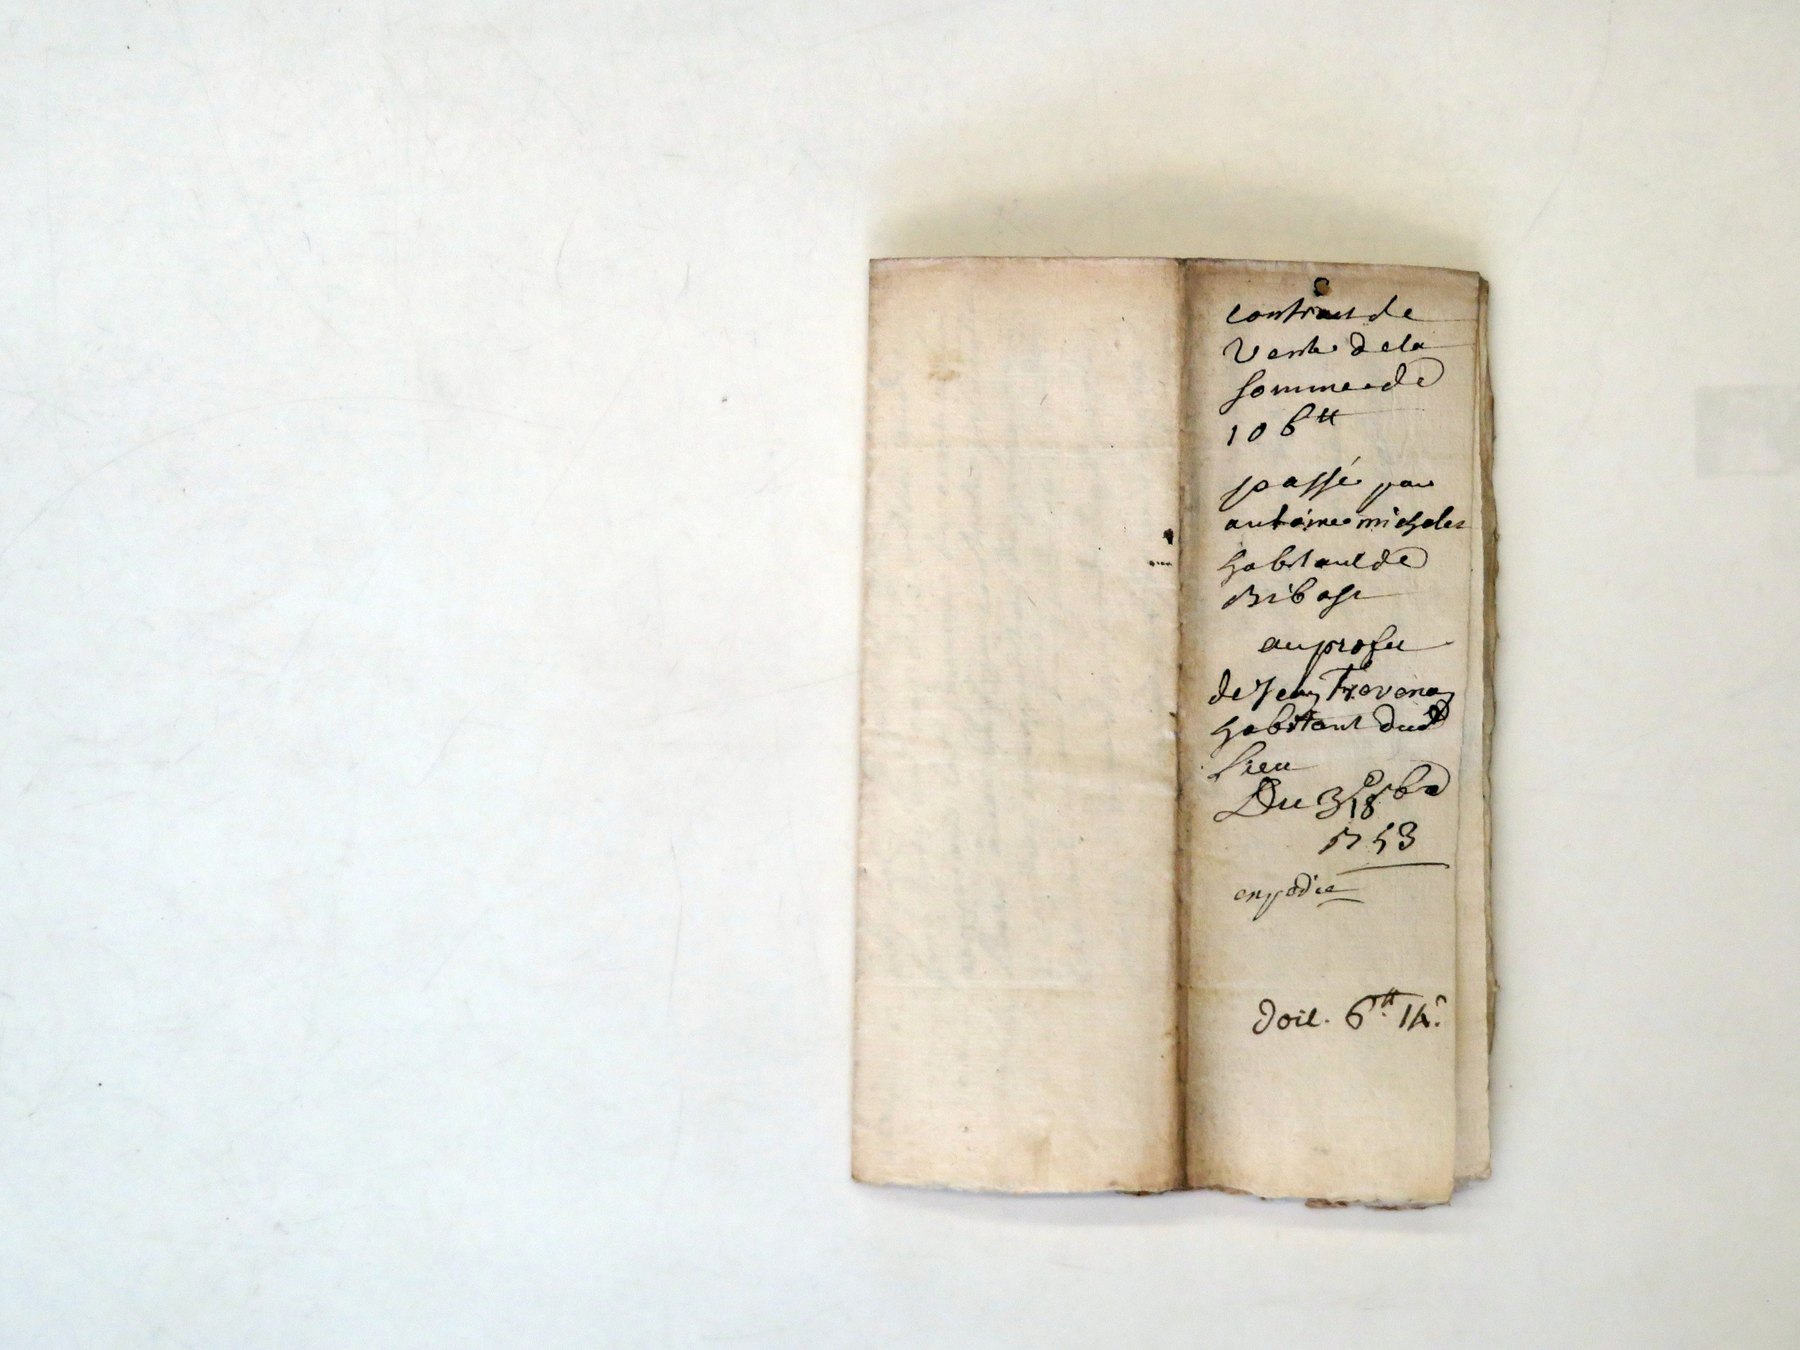 contract de
vente de la
somme de
106 ₶
passé par
antoine michela
habitant de
Ribasse
au profit
de Jean Trevenoy
habitant dud
lieu
Du 3 8bre
1753
expedie
doit. 6₶. 14s.